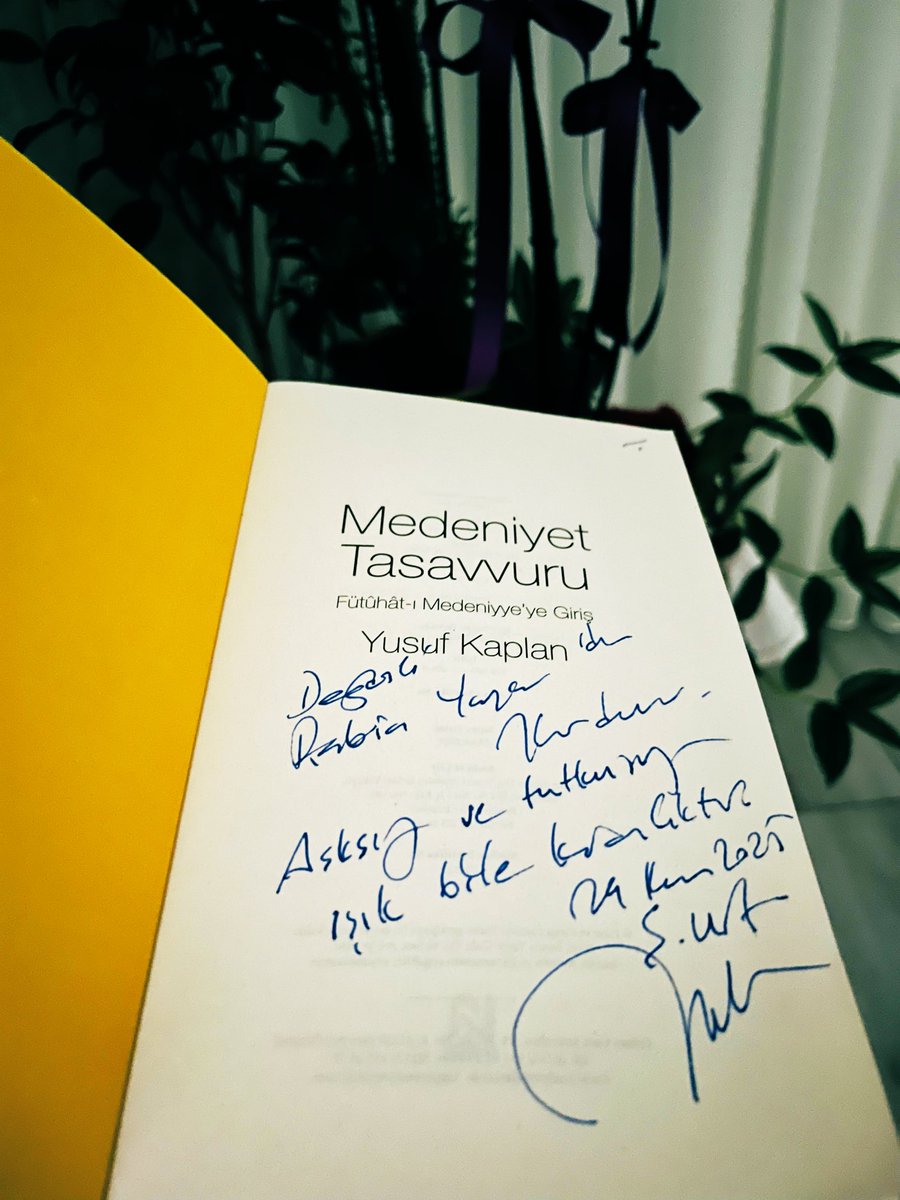 Medeniyet
Tasavvuru
Fütûhât-ı Medeniyye'ye Giriş
Yusuf Kaplan 'dan
Değerli
Rabia Yazar
Aşksız ve tutkusuz
ışık bile karanlıktır
29 2025